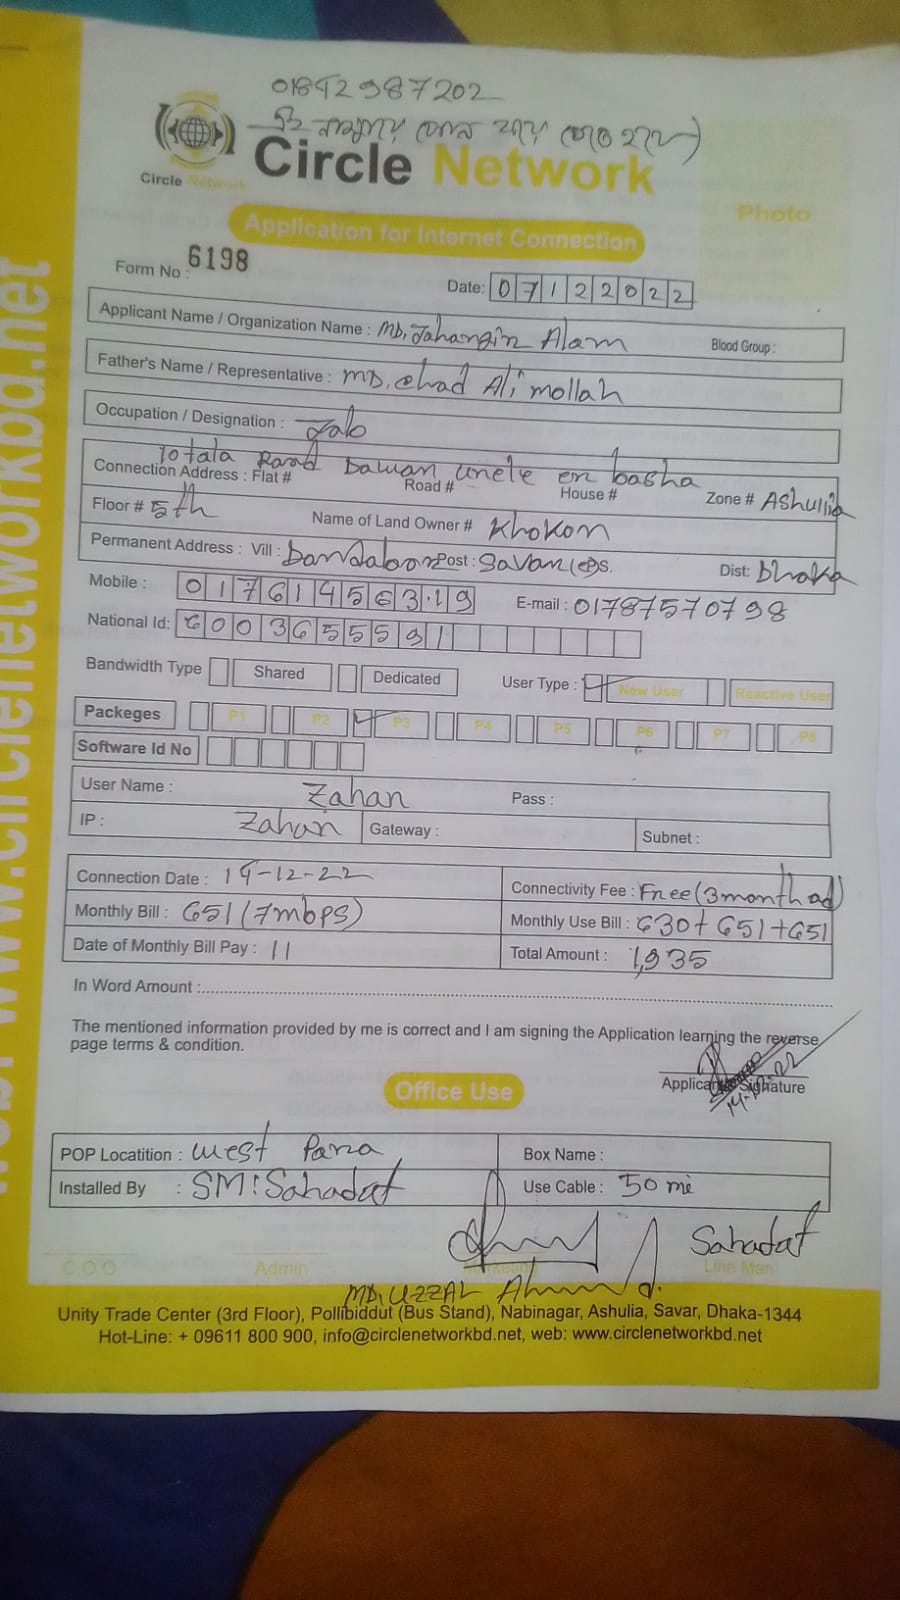 01842987202
এই নাম্বারে ফোন
Circle Network
Circle Network
Photo
Application for Internet Connection
Form No : 6198
Date: 07122022
Applicant Name / Organization Name : MD. Jahangir Alam Blood Group :
Father's Name / Representative : MD. Ali mollah
Occupation / Designation : Job
10 tala Road basha
Connection Address : Flat # Road # House # Zone # Ashulia
Floor # 5th Name of Land Owner # Khokon
Permanent Address : Vill : Post : Savar Dist: Dhaka
Mobile : E-mail : 01787570798
National Id: 6003655591
Bandwidth Type Shared Dedicated User Type : New User Reactive User
Packeges P1 P2 P3 P4 P5 P6 P7 P8
Software Id No
User Name : Zahan Pass :
IP : Zahan Gateway : Subnet :
Connection Date : 14-12-22 Connectivity Fee : Free (3 month ad)
Monthly Bill : 651 (7mbps) Monthly Use Bill : 630+651+651
Date of Monthly Bill Pay : 11 Total Amount : 1,935
In Word Amount :
The mentioned information provided by me is correct and I am signing the Application learning the reverse
page terms & condition.
14.12.22
Applicant Signature
Office Use
POP Locatition : west Para Box Name :
Installed By : SM: Sahadat Use Cable : 50 mi
Sahadat
C.O.O Admin Marketing Line Man
MD. UZZAL Ahmed.
Unity Trade Center (3rd Floor), Pollibiddut (Bus Stand), Nabinagar, Ashulia, Savar, Dhaka-1344
Hot-Line: + 09611 800 900, info@circlenetworkbd.net, web: www.circlenetworkbd.net
www.circlenetworkbd.net